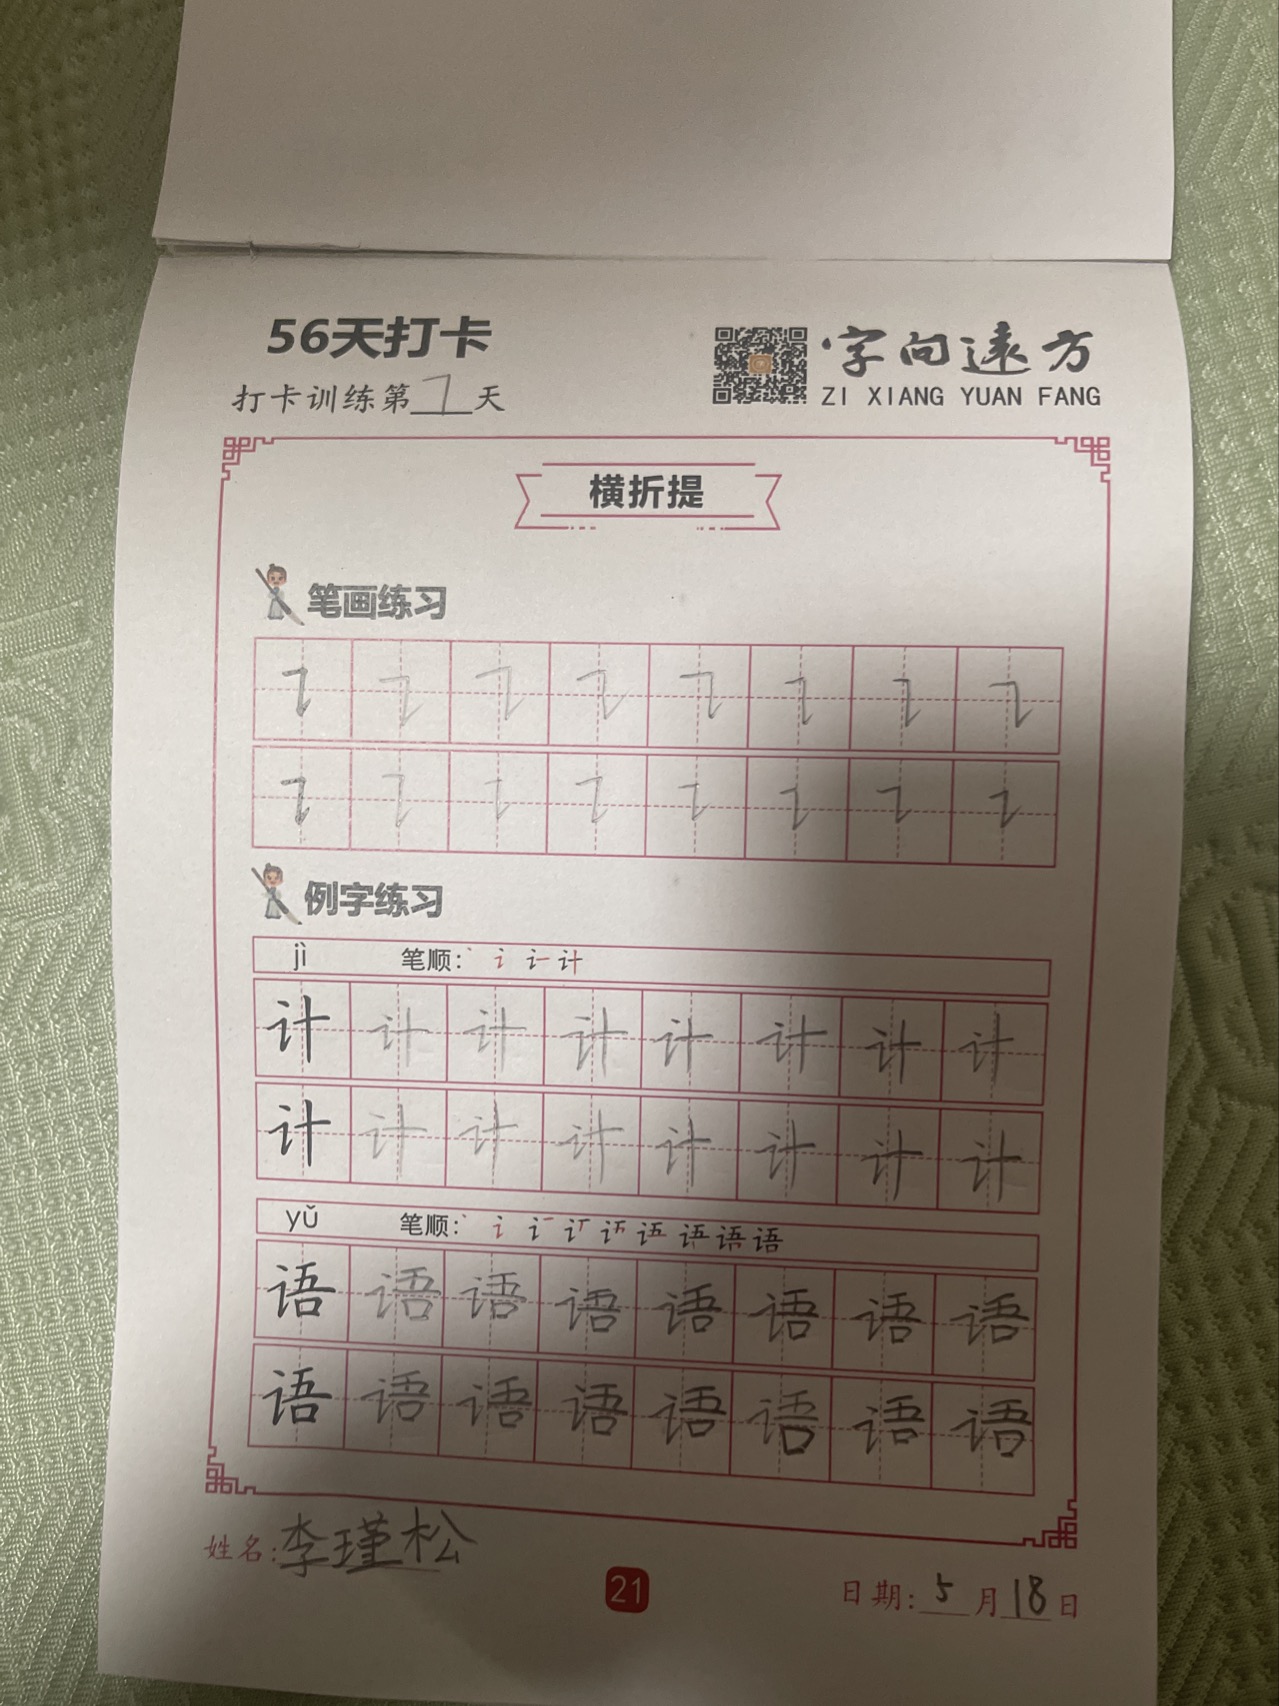 56天打卡
打卡训练第7天
字向远方
ZI XIANG YUAN FANG
横折提
笔画练习
㇊ ㇊ ㇊ ㇊ ㇊ ㇊ ㇊ ㇊
㇊ ㇊ ㇊ ㇊ ㇊ ㇊ ㇊ ㇊
例字练习
jì 笔顺:丶 讠 计
计 计 计 计 计 计 计 计
计 计 计 计 计 计 计 计
yǔ 笔顺: 语
语 语 语 语 语 语 语 语
语 语 语 语 语 语 语 语
姓名:李瑾松
21
日期:5月18日